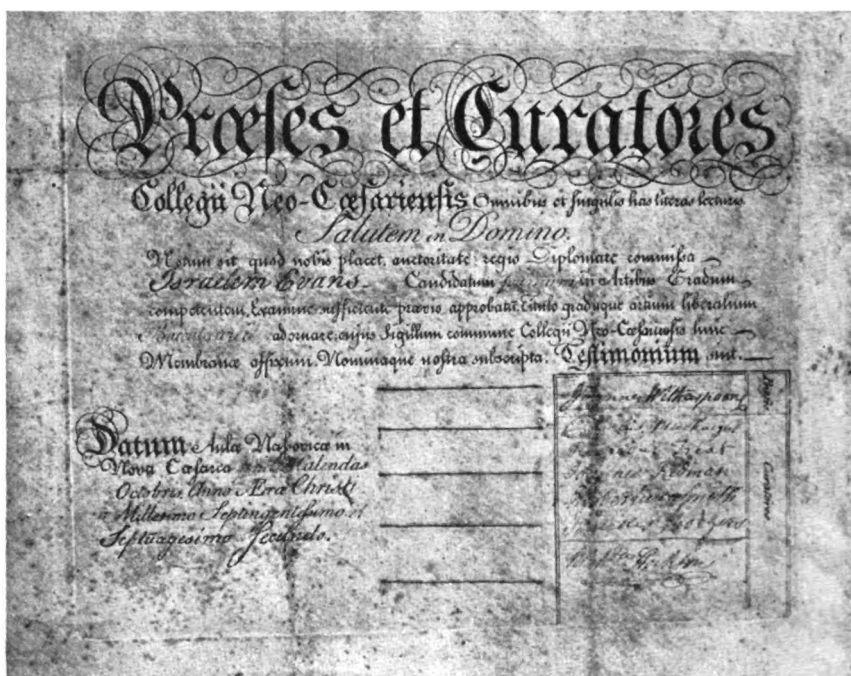 Præses et Curatores
Collegii Neo-Cæsariensis Omnibus et singulis has literas lecturis
Salutem in Domino.
Notum sit quod nobis placet, auctoritate regio Diplomate commissa
Israelem Evans Candidatum primum in Artibus Gradum
competentem, Examine sufficiente prævio approbatū, titulo graduque artium liberalium
adornare, cujus Sigillum commune Collegii Neo-Cæsariensis hinc
Membranæ affixum, Nominaque nostra subscripta. Testimonium sint.
Datum Aula Nassovica in
Nova Cæsarea Kalendas
Octobris, Anno Æræ Christi
Millesimo Septingentesimo et
Septuagesimo Secundo.
Præses
Witherspoon
Curatores
Rodman
Rodgers